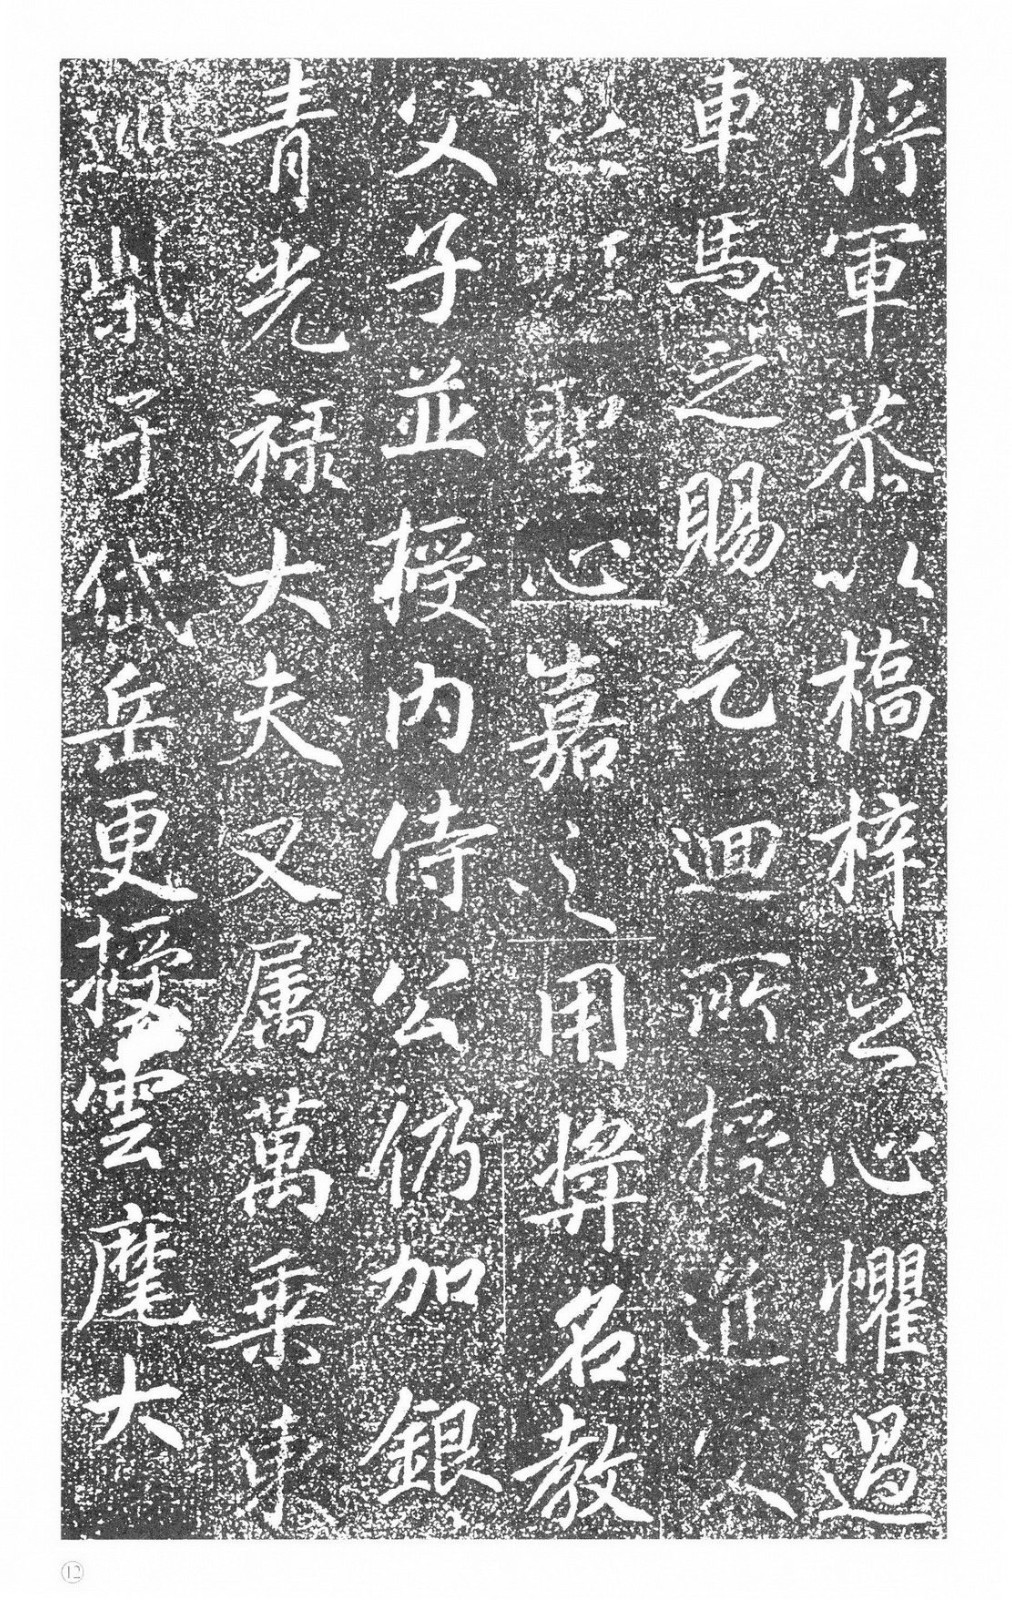 将軍恭以橋梓之心懼過
車馬之賜乞迴所授進
聖心嘉之用獎名教
父子並授内侍公仍加銀
青光禄大夫又属萬乗東
巡柴于岱岳更授雲麾大
⑫